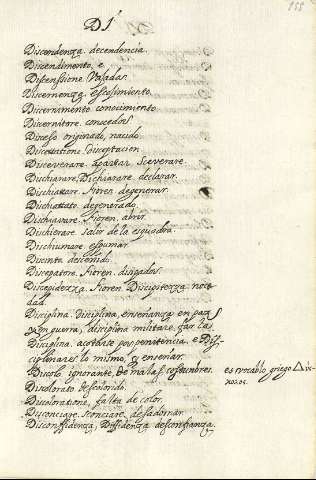 DI
155
Discendenza. decendencia
Discendimento, e
Discensione. Vajadas.
Discernenza, escojimiento
Discernimento conocimiento
Discernitore. conocedor
Disceso originado, nacido.
Discettatione. Disceptacion
Disceverare. apartar. Sceverare.
Dischiarare, Dichiarare declarar.
Dischiattare. Fioren. degenerar.
Dischiattato degenerado
Dischiavare. Fioren. abrir.
Dischierare. Salir de la esquadra.
Dischiumare. espumar.
Discinto desceñido.
Discegatore. Fioren.
Discepidezza. Fioren Discipitezza. nece
dad.
Disciplina. disciplina, enseñanza en paz y
en guerra, disciplina militare. far la
Disciplina. acotarse por penitencia. e Dis-
ciplinare lo mismo, y enseñar.
Discolo. ignorante de malas costumbres.
es vocablo griego Δυ-
Discolorato descolorido.
Discoloratione, falta de color.
Disconciare. sconciare. desadornar.
Disconfidenza, Diffidenza desconfianza.